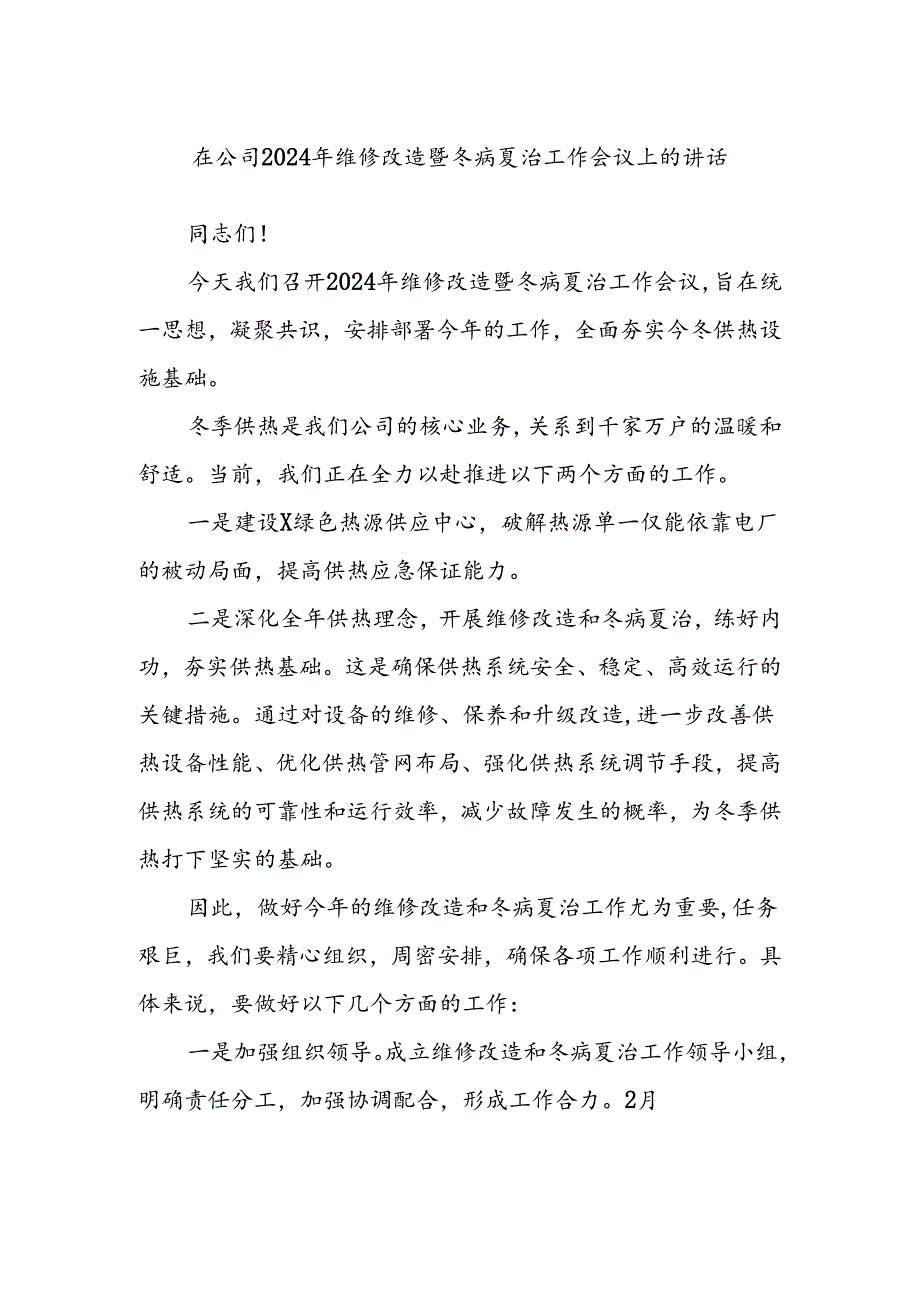 在公司2024年维修改造暨冬病夏治工作会议上的讲话
同志们！
今天我们召开2024年维修改造暨冬病夏治工作会议,旨在统
一思想，凝聚共识，安排部署今年的工作，全面夯实今冬供热设
施基础。
冬季供热是我们公司的核心业务,关系到千家万户的温暖和
舒适。当前，我们正在全力以赴推进以下两个方面的工作。
一是建设X绿色热源供应中心，破解热源单一仅能依靠电厂
的被动局面，提高供热应急保证能力。
二是深化全年供热理念，开展维修改造和冬病夏治，练好内
功，夯实供热基础。这是确保供热系统安全、稳定、高效运行的
关键措施。通过对设备的维修、保养和升级改造,进一步改善供
热设备性能、优化供热管网布局、强化供热系统调节手段，提高
供热系统的可靠性和运行效率，减少故障发生的概率，为冬季供
热打下坚实的基础。
因此，做好今年的维修改造和冬病夏治工作尤为重要,任务
艰巨，我们要精心组织，周密安排，确保各项工作顺利进行。具
体来说，要做好以下几个方面的工作：
一是加强组织领导。成立维修改造和冬病夏治工作领导小组，
明确责任分工，加强协调配合，形成工作合力。2月